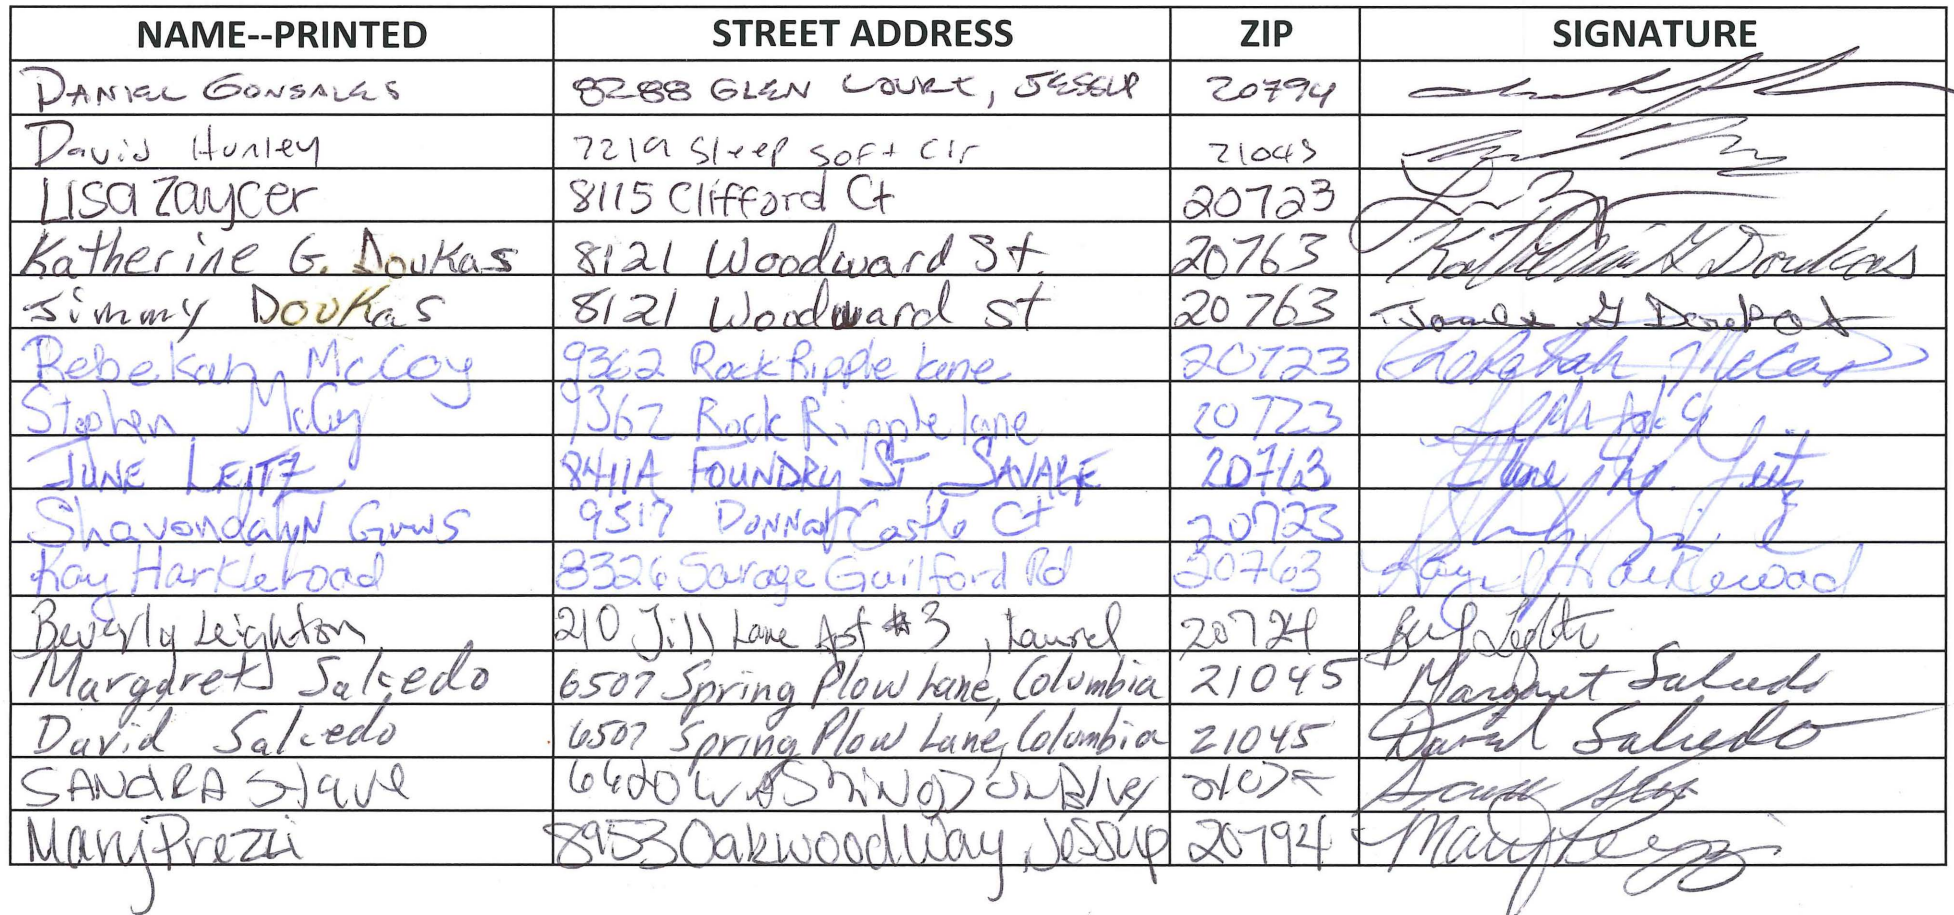 NAME--PRINTED STREET ADDRESS ZIP SIGNATURE
DANIEL GONSALES 8288 GLEN COURT, JESSUP 20794
David Hunley 7219 Sleep Soft Cir 21045
LISA Zaycer 8115 Clifford Ct 20723
Katherine G. Doukas 8121 Woodward St. 20763 Katherine G Doukas
Jimmy Doukas 8121 Woodward St 20763 James G Doukas
Rebekah McCoy 9362 Rock Ripple Lane 20723 Rebekah McCoy
Stephen McCoy 9362 Rock Ripple lane 20723
JUNE LEITZ 8411A FOUNDRY ST SAVAGE 20763 June M. Leitz
Shavondalyn 9517 Castle Ct 20723
Kay Harkleroad 8326 Savage Guilford Rd 20763 Kay Harkleroad
Beverly Leighton 210 Jill Lane Apt #3, Laurel 20724
Margaret Salcedo 6507 Spring Plow Lane, Columbia 21045 Margaret Salcedo
David Salcedo 6507 Spring Plow Lane, Columbia 21045 David Salcedo
SANDRA 6420
Mary Prezzi 8953 Oakwood Way, Jessup 20794